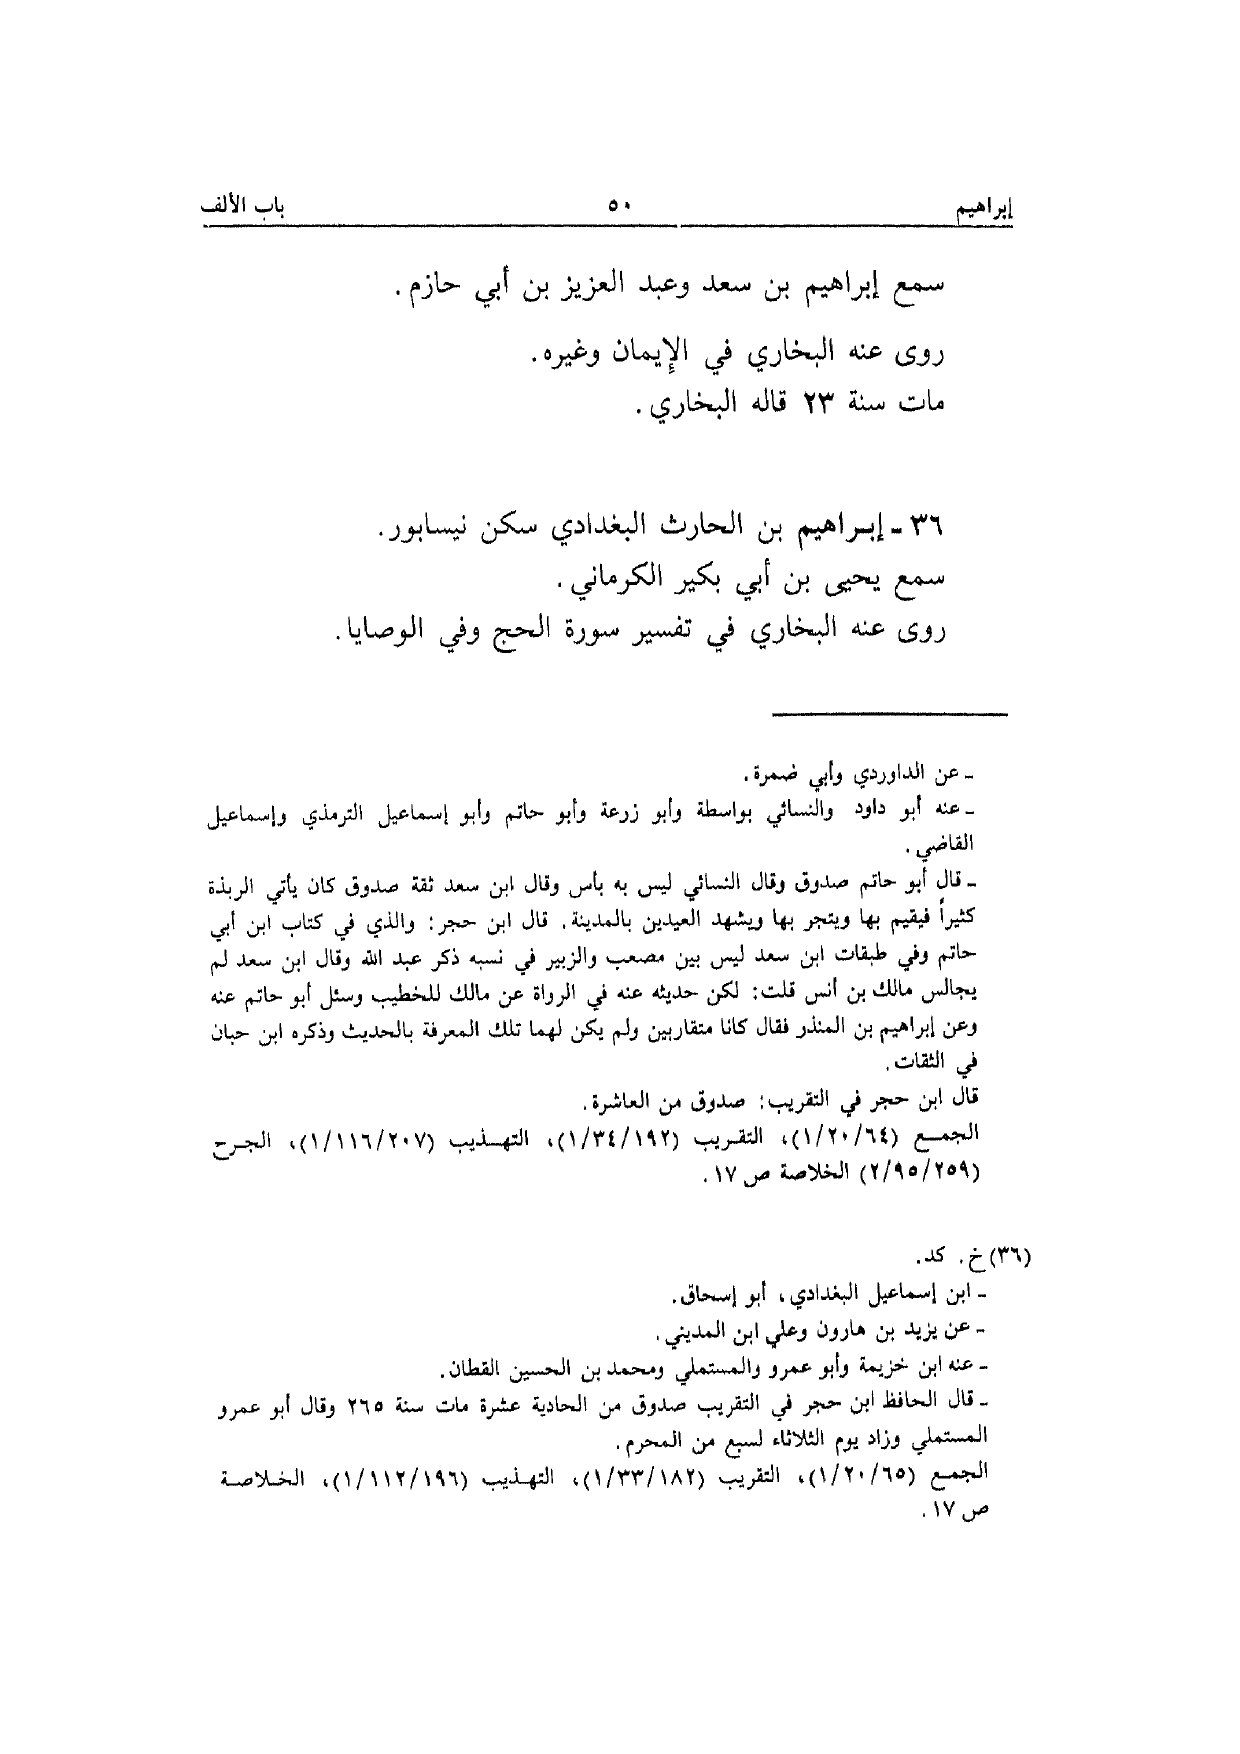 إبراهيم ٥٠ باب الألف
سمع إبراهيم بن سعد وعبد العزيز بن أبي حازم .
روى عنه البخاري في الإيمان وغيره.
مات سنة ٢٣ قاله البخاري .
٣٦ - إبراهيم بن الحارث البغدادي سكن نيسابور.
سمع يحيى بن أبي بكير الكرماني .
روى عنه البخاري في تفسير سورة الحج وفي الوصايا.
- عن الداوردي وأبي ضمرة.
- عنه أبو داود والنسائي بواسطة وأبو زرعة وأبو حاتم وأبو إسماعيل الترمذي وإسماعيل
القاضي .
- قال أبو حاتم صدوق وقال النسائي ليس به بأس وقال ابن سعد ثقة صدوق كان يأتي الربذة
كثيراً فيقيم بها ويتجر بها ويشهد العيدين بالمدينة. قال ابن حجر: والذي في كتاب ابن أبي
حاتم وفي طبقات ابن سعد ليس بين مصعب والزبير في نسبه ذكر عبد الله وقال ابن سعد لم
يجالس مالك بن أنس قلت: لكن حديثه عنه في الرواة عن مالك للخطيب وسئل أبو حاتم عنه
وعن إبراهيم بن المنذر فقال كانا متقاربين ولم يكن لهما تلك المعرفة بالحديث وذكره ابن حبان
في الثقات.
قال ابن حجر في التقريب: صدوق من العاشرة.
الجمع (١/٢٠/٦٤)، التقريب (١/٣٤/١٩٢)، التهذيب (١/١١٦/٢٠٧)، الجرح
(٢/٩٥/٢٥٩) الخلاصة ص ١٧.
(٣٦) خ . كد.
- ابن إسماعيل البغدادي، أبو إسحاق.
- عن يزيد بن هارون وعلي ابن المديني.
- عنه ابن خزيمة وأبو عمرو والمستملي ومحمد بن الحسين القطان.
- قال الحافظ ابن حجر في التقريب صدوق من الحادية عشرة مات سنة ٢٦٥ وقال أبو عمرو
المستملي وزاد يوم الثلاثاء لسبع من المحرم.
الجمع (١/٢٠/٦٥)، التقريب (١/٣٣/١٨٢)، التهذيب (١/١١٢/١٩٦)، الخلاصة
ص ١٧ .